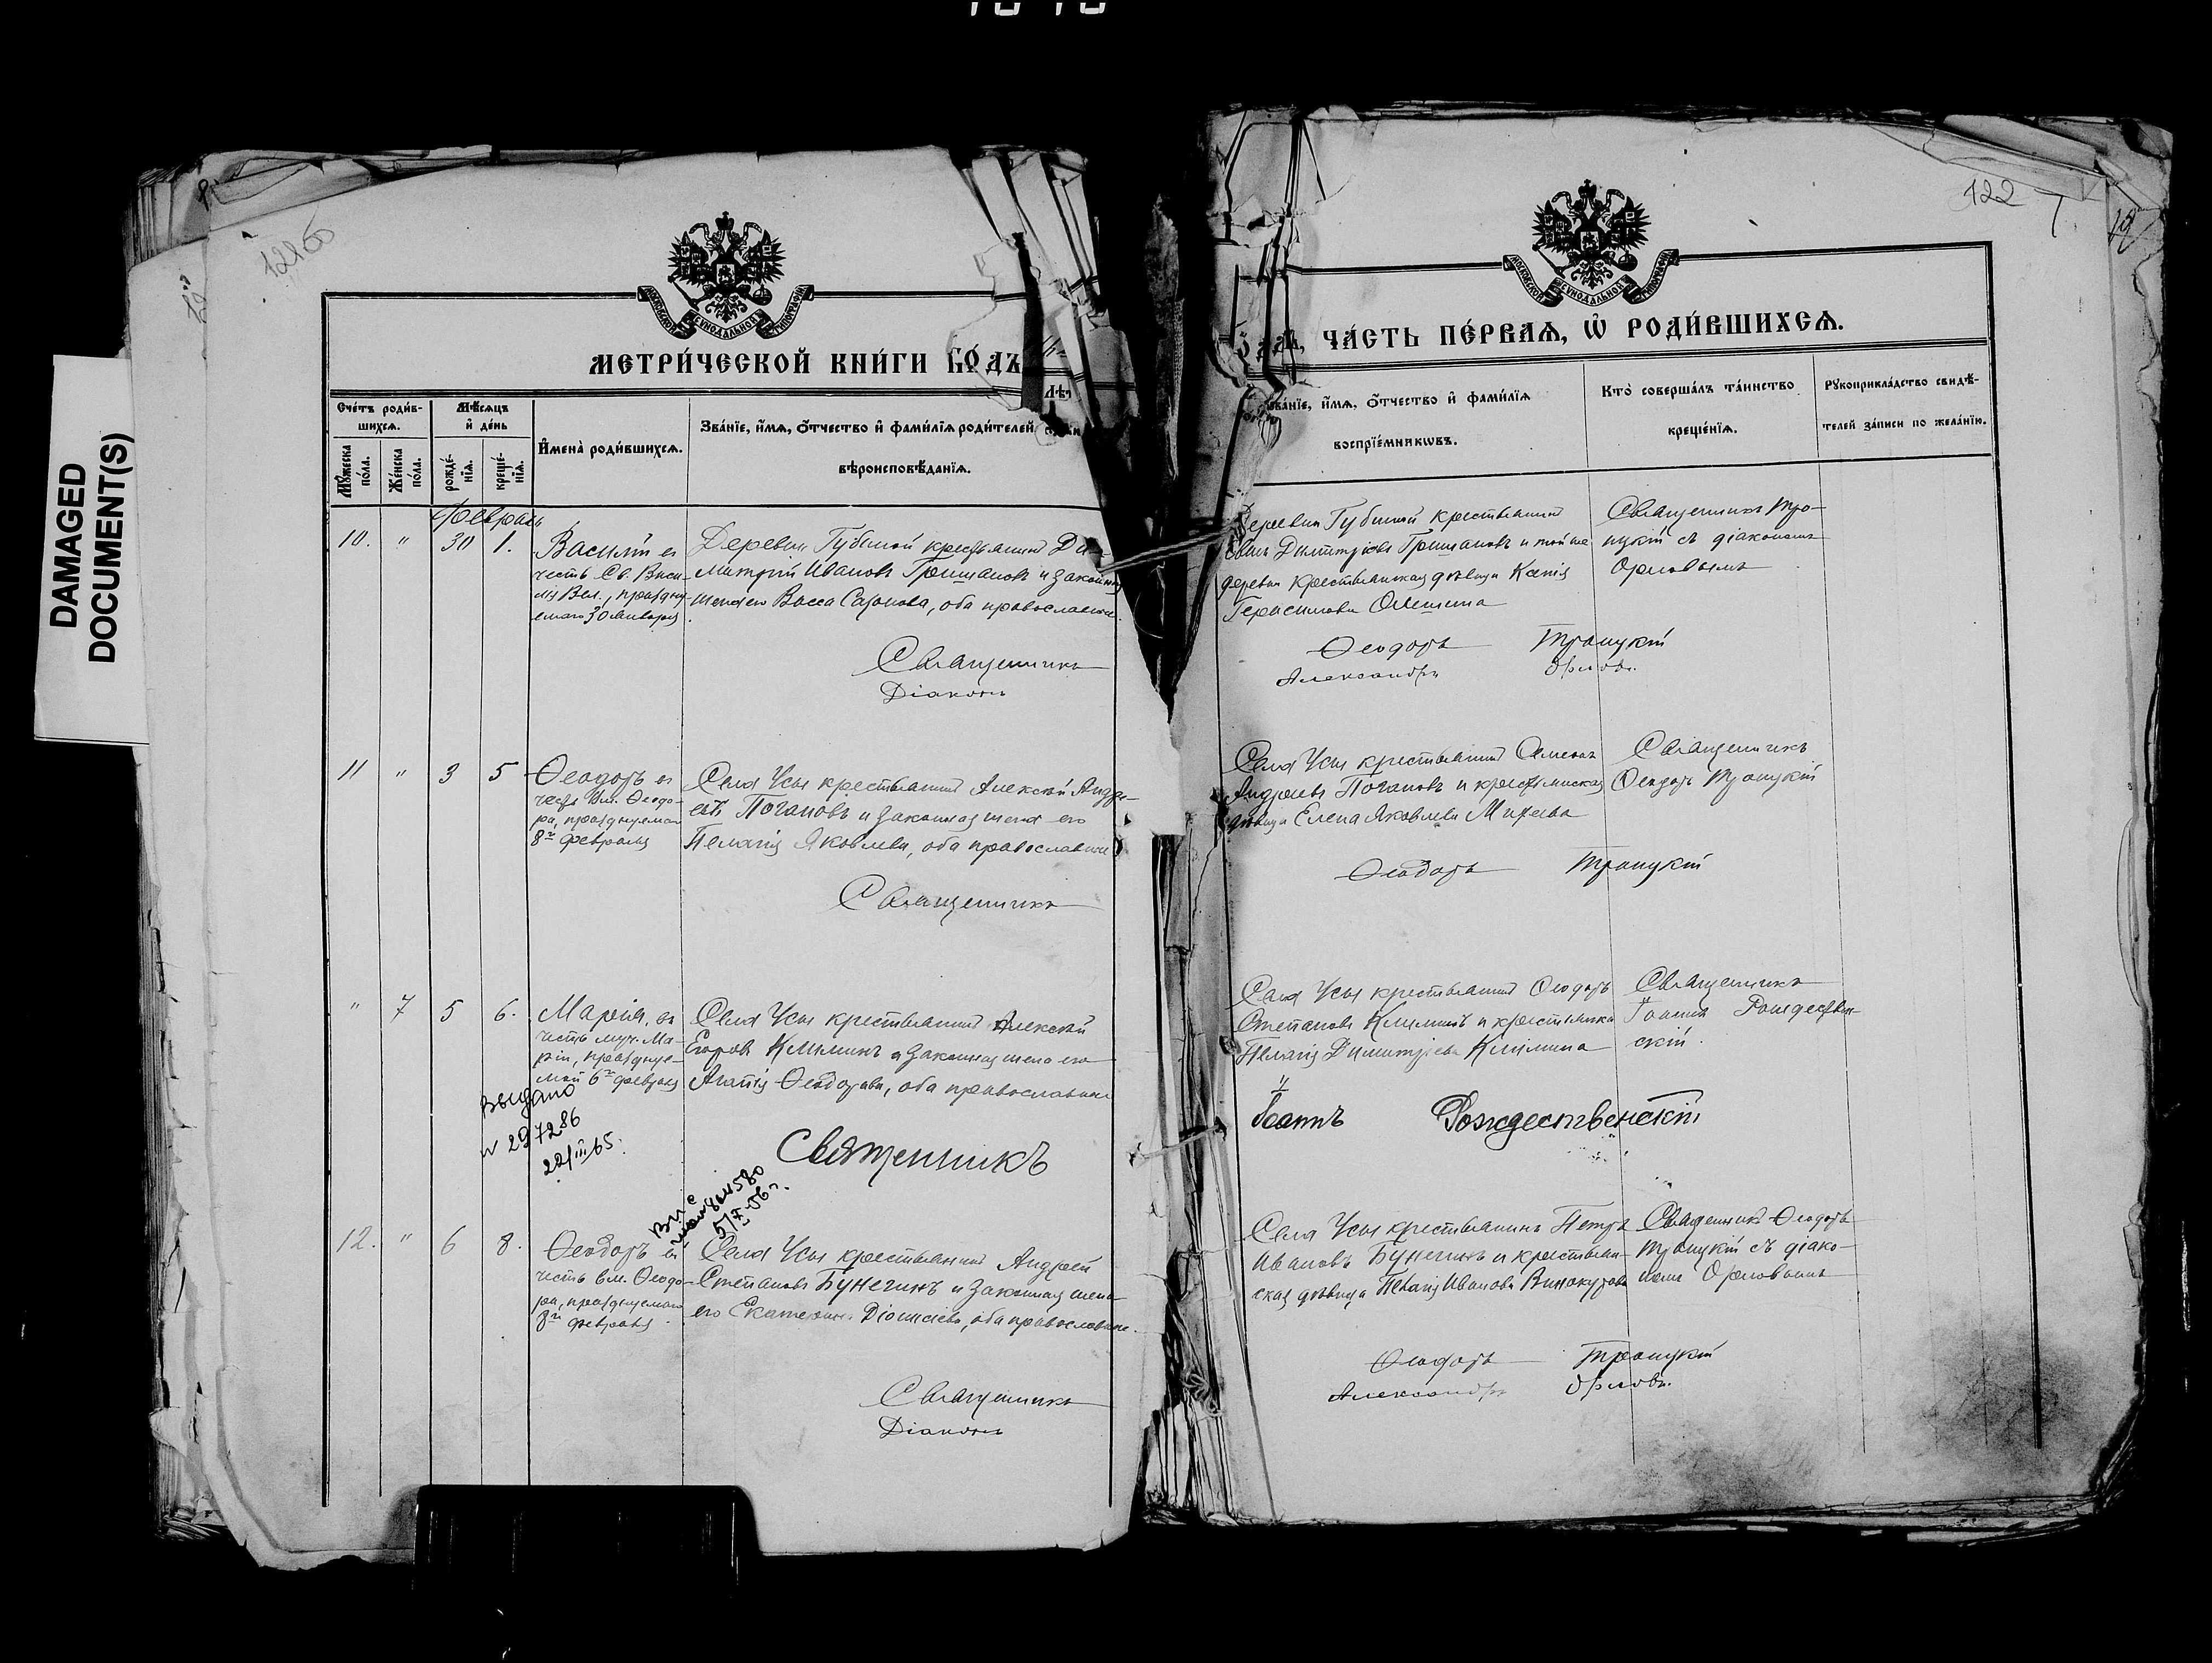 DAMAGED
DOCUMENT(S)
122
МОСКОВСКОЙ СѴНОДАЛЬНОЙ ТИПОГРАФІИ
МЕТРИ́ЧЕСКОЙ КНИ́ГИ
Сче́тъ роди́в-
шихсѧ.
Мѣ́сѧцъ
и҆ де́нь
Мꙋ́жеска
по́ла.
Же́нска
по́ла.
рожде́-
нїѧ.
креще́-
нїѧ.
И҆мена̀ роди́вшихсѧ.
Зва́нїе, и҆́мѧ, ѻ҆́тчество и҆ фами́лїѧ роди́телей
вѣроисповѣ́данїѧ.
Февраль
10. " 30 1.
Василій въ
честь Св. Васи-
лія Вел., праздну-
емаго 30 января
Деревни Губиной крестьянинъ Ди-
митрій Ивановъ Гришановъ и законная
жена его Васса Сазонова, оба православные.
Священникъ
Діаконъ
11 " 3 5
Ѳеодоръ въ
честь Вм. Ѳеодо-
ра, празднуемаго
8го февраля
Села Усы крестьянинъ Алексѣй Андре-
евъ Погановъ и законная жена его
Пелагія Яковлева, оба православные
Священникъ
" 7 5 6.
Марія, въ
честь муч. Ма-
ріи, праздnуе-
мой 6го февраля
Села Усы крестьянинъ Алексѣй
Егоровъ Климинъ и законная жена его
Агапія Ѳеодорова, оба православные
Выдано
N 297286
22/III 65.
Священникъ
5/X-56г.
12. " 6 8.
Ѳеодоръ въ
честь вм. Ѳеодо-
ра, празднуемаго
8го февраля
Села Усы крестьянинъ Андрей
Степановъ Бунегинъ и законная жена
его Екатерина Діонисіева, оба православные.
Священникъ
Діаконъ
МОСКОВСКОЙ СѴНОДАЛЬНОЙ ТИПОГРАФІИ
ЧА́СТЬ ПЕ́РВАѦ, Ѽ РОДИ́ВШИХСѦ.
Зва́нїе, и҆́мѧ, ѻ҆́тчество и҆ фами́лїѧ
воспрїе́мникѡвъ.
Кто̀ соверша́лъ та́инство
креще́нїѧ.
Рꙋкоприкла́дство свидѣ́-
телей за́писи по жела́нїю.
Деревни Губиной крестьянинъ
Димитріевъ Гришановъ и той же
деревни крестьянская дѣвица Ксенія
Герасимова
Священникъ Тро-
ицкій съ діакономъ
Орловымъ
Ѳеодоръ Троицкій
Александръ Орловъ.
Села Усы крестьянинъ Семенъ
Андреевъ Погановъ и крестьянская
дѣвица Елена Яковлева
Священникъ
Ѳеодоръ Троицкій
Ѳеодоръ Троицкій
Села Усы крестьянинъ Ѳеодоръ
Степановъ Климинъ и крестьянка
Пелагія Димитріева Климина
Священникъ
Іоаннъ Рождествен-
скій.
Іоаннъ Рождественскій
Села Усы крестьянинъ Петръ
Ивановъ Бунегинъ и крестьян-
ская дѣвица Пелагія Иванова Винокурова
Священникъ Ѳеодоръ
Троицкій съ діако-
номъ Орловымъ
Ѳеодоръ Троицкій
Александръ Орловъ.